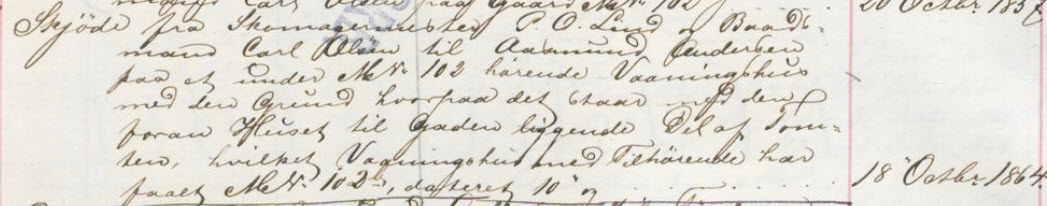 Carl Olsen paa Gaard MN: 102 20 Octbr. 1857.
Skjöde fra Skomagermester P. O. Lind og Baads-
mand Carl Olsen til Aamund Andersen
paa et under MN: 102 hörende Vaaningshus
med den Grund hvorpaa det staar med den
foran Huset til Gaden liggende Del af Tom-
ten, hvilket Vaaningshus med Tilhörende har
faaet MN: 102b, dateret 10' og 18' Octbr. 1864.